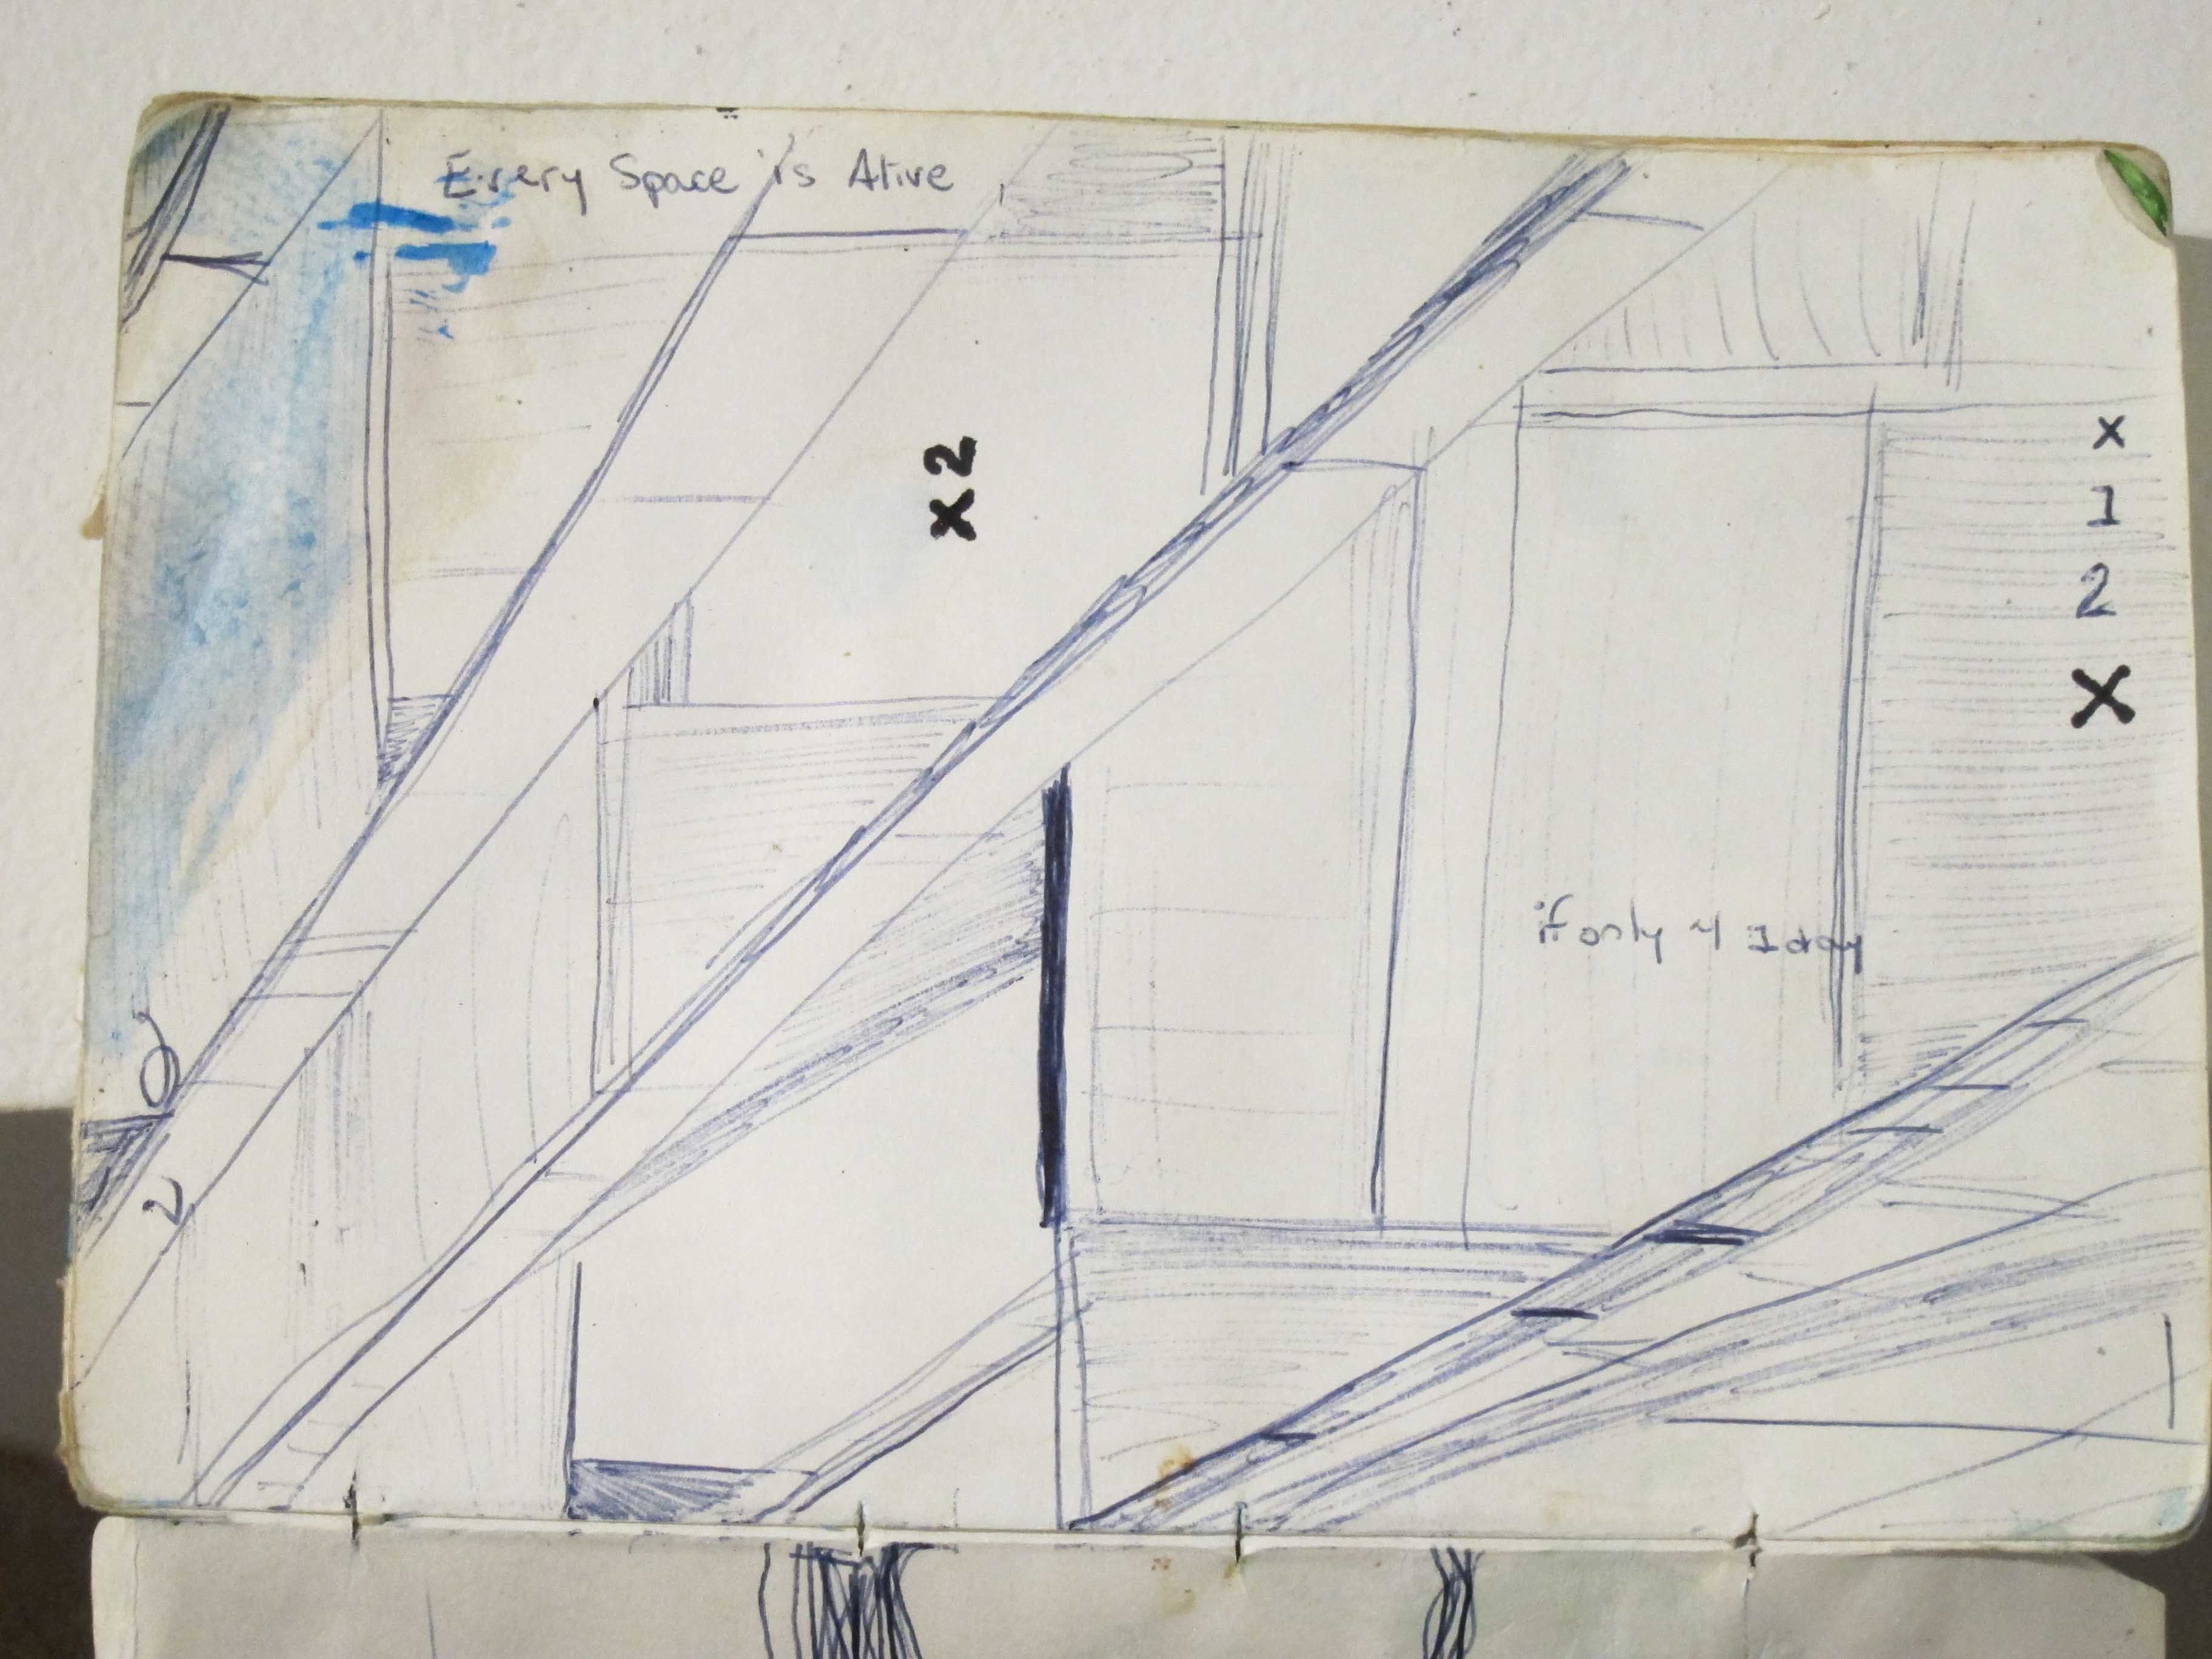 Every Space is Alive
x2
x
1
2
X
if only 4 1 day
2